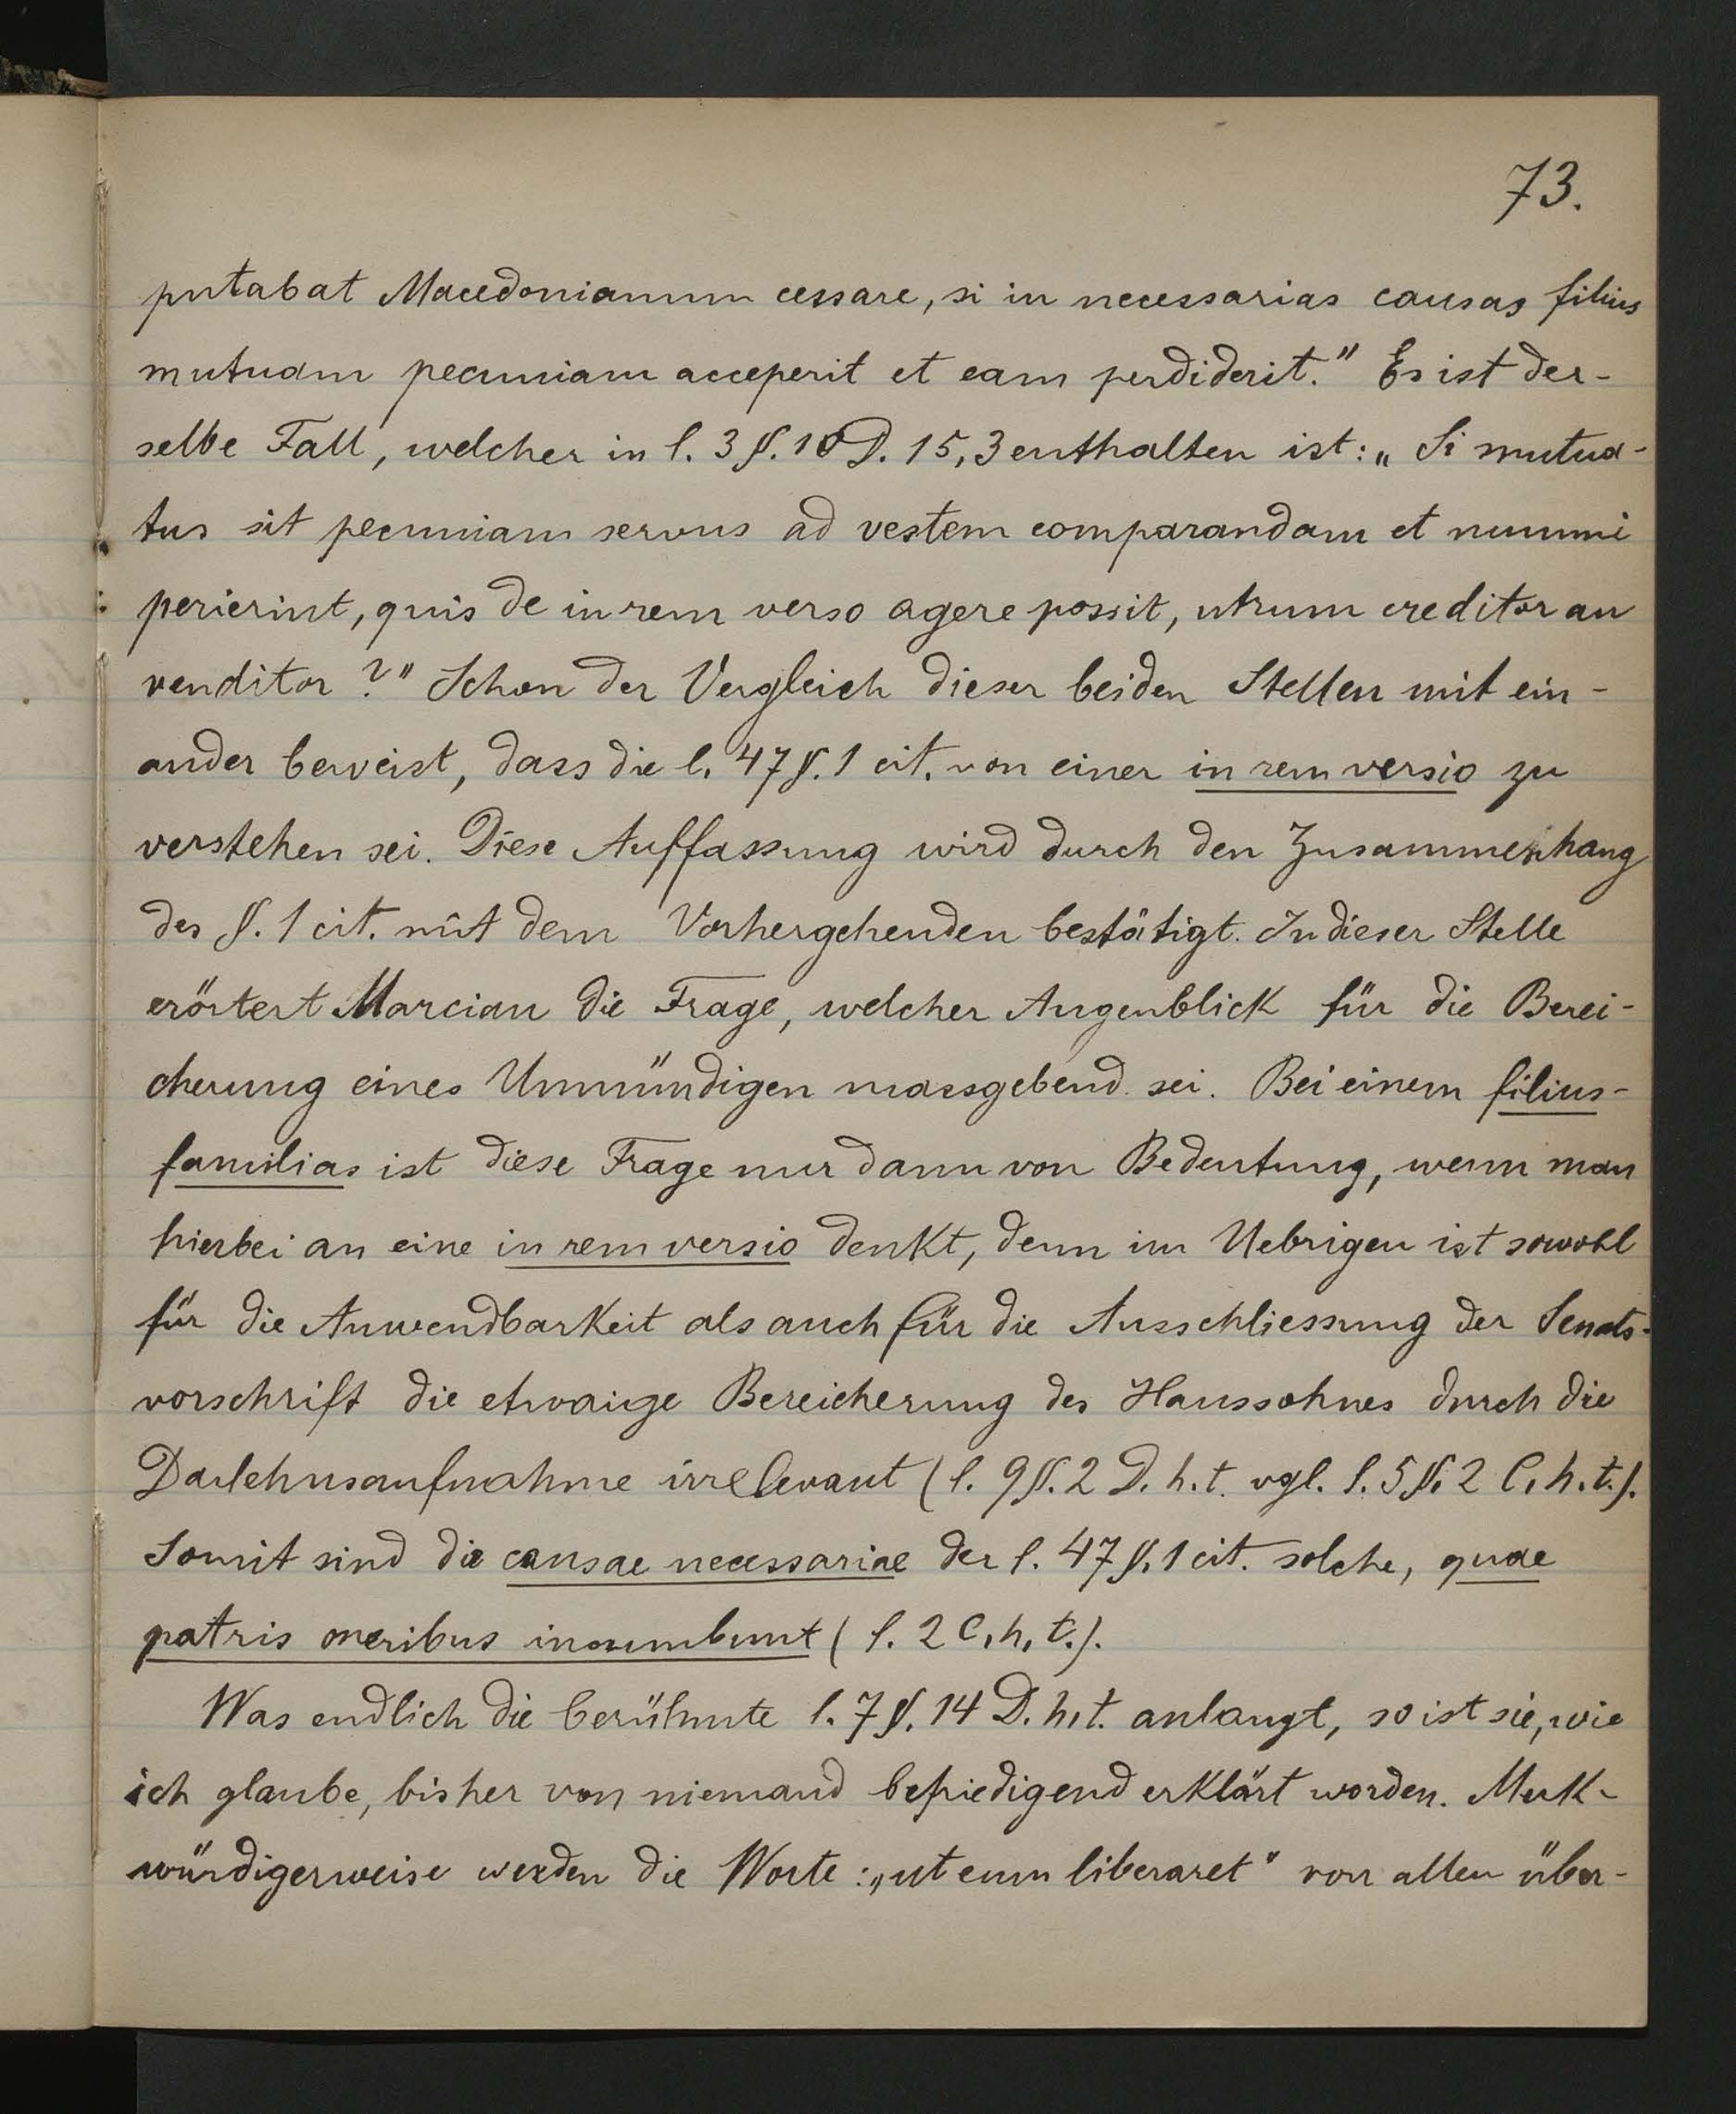 73.
putabat Macedonianum cessare, si in necessarias causas filius
mutuam pecuniam acceperit et eam perdiderit." Es ist der-
selbe Fall, welcher in l. 3 §. 10 D. 15, 3 enthalten ist: „Si mutua-
tus sit pecuniam servus ad vestem comparandam et nummi
perierint, quis de in rem verso agere possit, utrum creditor an
venditor?" Schon der Vergleich dieser beiden Stellen mit ein-
ander beweist, dass die l. 47 §. 1 cit. von einer in rem versio zu
verstehen sei. Diese Auffassung wird durch den Zusammenhang
des §. 1 cit. mit dem Vorhergehenden bestätigt. In dieser Stelle
erörtert Marcian die Frage, welcher Augenblick für die Berei-
cherung eines Unmündigen massgebend sei. Bei einem filius-
familias ist diese Frage nur dann von Bedeutung, wenn man
hierbei an eine in rem versio denkt, denn im Uebrigen ist sowohl
für die Anwendbarkeit als auch für die Ausschliessung der Senats-
vorschrift die etwaige Bereicherung des Haussohnes durch die
Darlehnsaufnahme irrelevant (l. 9 §. 2 D. h. t. vgl. l. 5 §. 2 C. h. t.).
Somit sind die causae necessariae der l. 47 §. 1 cit. solche, quae
patris oneribus incumbunt (l. 2 C. h. t.).
Was endlich die berühmte l. 7 §. 14 D. h. t. anlangt, so ist sie, wie
ich glaube, bisher von niemand befriedigend erklärt worden. Merk-
würdigerweise werden die Worte: „ut eum liberaret" von allen über-